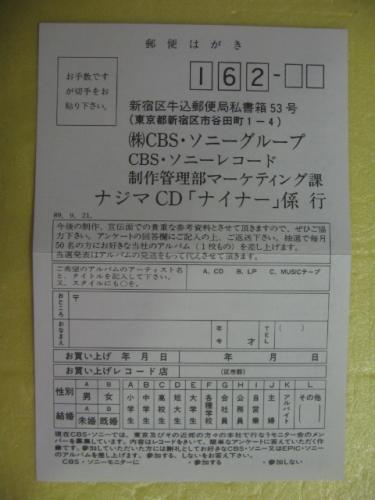 郵便はがき
お手数です
が切手をお
貼り下さい。
162-
新宿区牛込郵便局私書箱53号
(東京都新宿区市谷田町1-4)
㈱CBS・ソニーグループ
CBS・ソニーレコード
制作管理部マーケティング課
ナジマCD「ナイナー」係 行
89. 9. 21.
今後の制作、宣伝面での貴重な参考資料とさせて頂きますので、ぜひご協
力下さい。アンケートの回答欄にご記入の上、ご返送下さい。抽選で毎月
50名の方にお好きな当社のアルバム(1枚もの)を差し上げます。
当選発表はアルバムの発送をもって代えさせて頂きます。
ご希望のアルバムのアーティスト名
と、タイトルを記入して下さい。
又、スタイルにも○を。
A. CD B. LP C. MUSICテープ
おところ
〒
おなまえ
年令
才
TEL
( )
お買い上げ 年 月 日
年 月 日
お買い上げレコード店
(区市郡)
性別
A 男
B 女
結婚
A 未婚
B 既婚
A 小学生
B 中学生
C 高校生
D 短大生
E 大学生
F 各種学校
G 会社員
H 公務員
I 自営業
J 主婦
K アルバイト
L その他
( )
現在CBS・ソニーでは、東京及びその近郊の方々の本社で行なうモニター会のメン
バーを募集しています。内容はレコードをきいて、簡単なアンケートに答えていただく作
業で、参加していただいた方には御礼としてお好きなCBS・ソニー又はEPIC・ソニー
のアルバムを差し上げます。参加する、しないをお答え下さい。
CBS・ソニーモニターに ・参加する ・参加しない